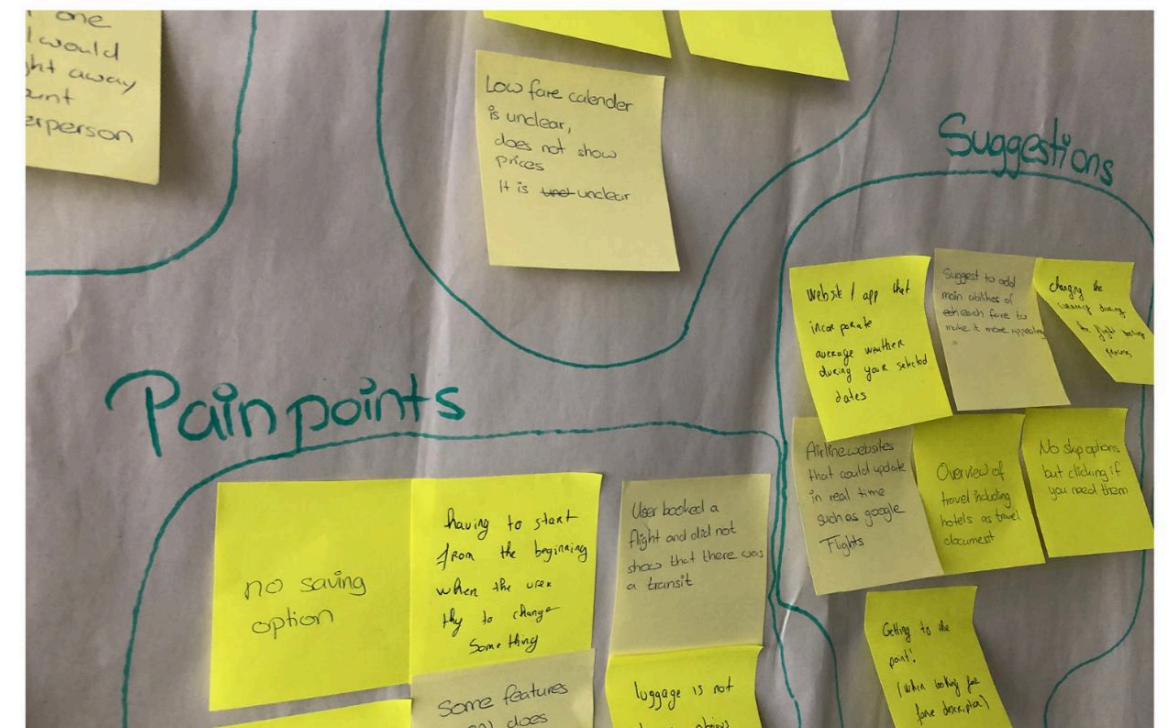 one
I would
ght away
erperson
Low fare calender
is unclear,
does not show
prices
It is unclear
Suggestions
website / app that
incorporate
average weather
during your selected
dates
Suggest to add
main abilities of
each fare to
make it more appealing
changing the
during
the flight
Airline websites
that could update
in real time
such as google
Flights
Overview of
travel including
hotels as travel
document
No skip options
but clicking if
you need them
Getting to the
point!
(when looking for
fare description)
Pain points
no saving
option
having to start
from the beginning
when the user
thy to change
Something
User booked a
flight and did not
show that there was
a transit
Some features
does
luggage is not